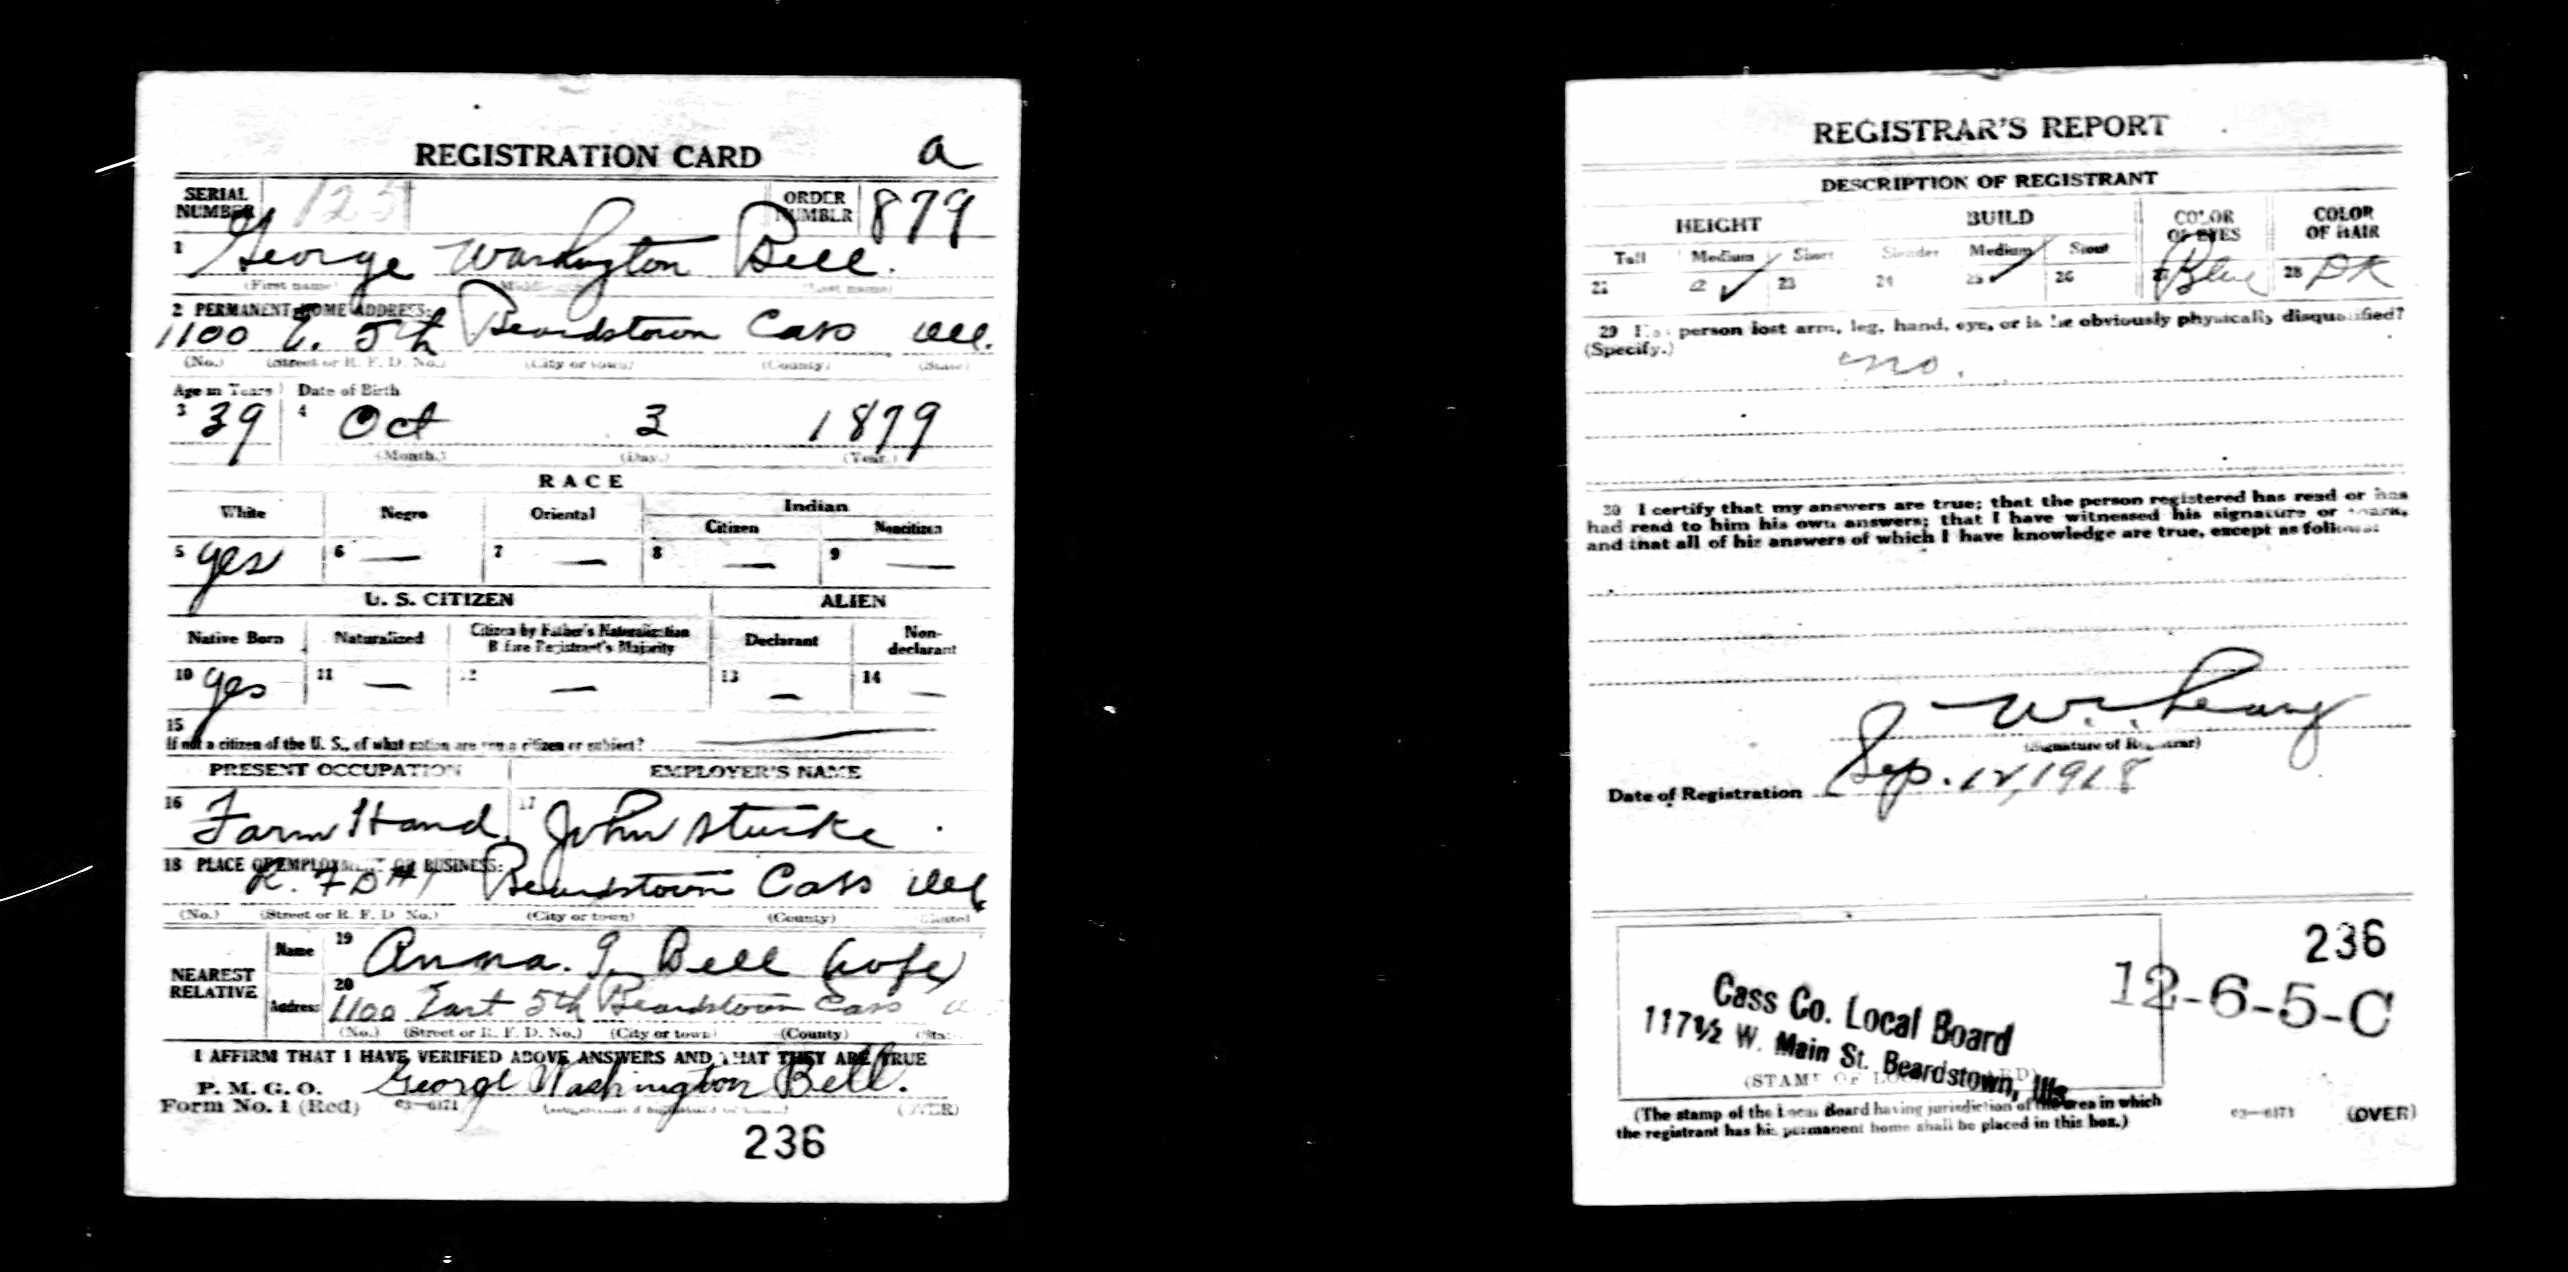 REGISTRATION CARD a
SERIAL NUMBER 125 ORDER NUMBER 879
1 George Washington Bell.
(First name) (Middle name) (Last name)
2 PERMANENT HOME ADDRESS:
1100 E. 5th Beardstown Cass Ill.
(No.) (Street or R. F. D. No.) (City or town) (County) (State)
Age in Years Date of Birth
3 39 4 Oct 3 1879
(Month.) (Day.) (Year.)
RACE
White Negro Oriental Indian
Citizen Noncitizen
5 yes 6 — 7 — 8 — 9 —
U. S. CITIZEN ALIEN
Native Born Naturalized Citizen by Father's Naturalization Before Registrant's Majority Declarant Non-declarant
10 yes 11 — 12 — 13 — 14 —
15
If not a citizen of the U. S., of what nation are you a citizen or subject?
PRESENT OCCUPATION EMPLOYER'S NAME
16 Farm Hand 17 John
18 PLACE OF EMPLOYMENT OR BUSINESS:
R. F D #1 Beardstown Cass Ill
(No.) (Street or R. F. D. No.) (City or town) (County) (State)
NEAREST RELATIVE
Name 19 Anna. J. Bell (wife)
Address 20 1100 East 5th Beardstown Cass
(No.) (Street or R. F. D. No.) (City or town) (County) (State)
I AFFIRM THAT I HAVE VERIFIED ABOVE ANSWERS AND THAT THEY ARE TRUE
P. M. G. O.
Form No. 1 (Red) 03—6171 George Washington Bell. (OVER)
236
REGISTRAR'S REPORT
DESCRIPTION OF REGISTRANT
HEIGHT BUILD COLOR OF EYES COLOR OF HAIR
Tall Medium Short Slender Medium Stout
21 22 ✓ 23 24 25 ✓ 26 27 Blue 28 DK
29 Has person lost arm, leg, hand, eye, or is he obviously physically disqualified?
(Specify.)
no.
30 I certify that my answers are true; that the person registered has read or has
had read to him his own answers; that I have witnessed his signature or mark,
and that all of his answers of which I have knowledge are true, except as follows:
(Signature of Registrar)
Date of Registration Sep. 12, 1918
236
12-6-5-C
Cass Co. Local Board
117½ W. Main St. Beardstown, Ills
(STAMP OF LOCAL BOARD)
(The stamp of the Local Board having jurisdiction of the area in which
the registrant has his permanent home shall be placed in this box.)
03—6171 (OVER)